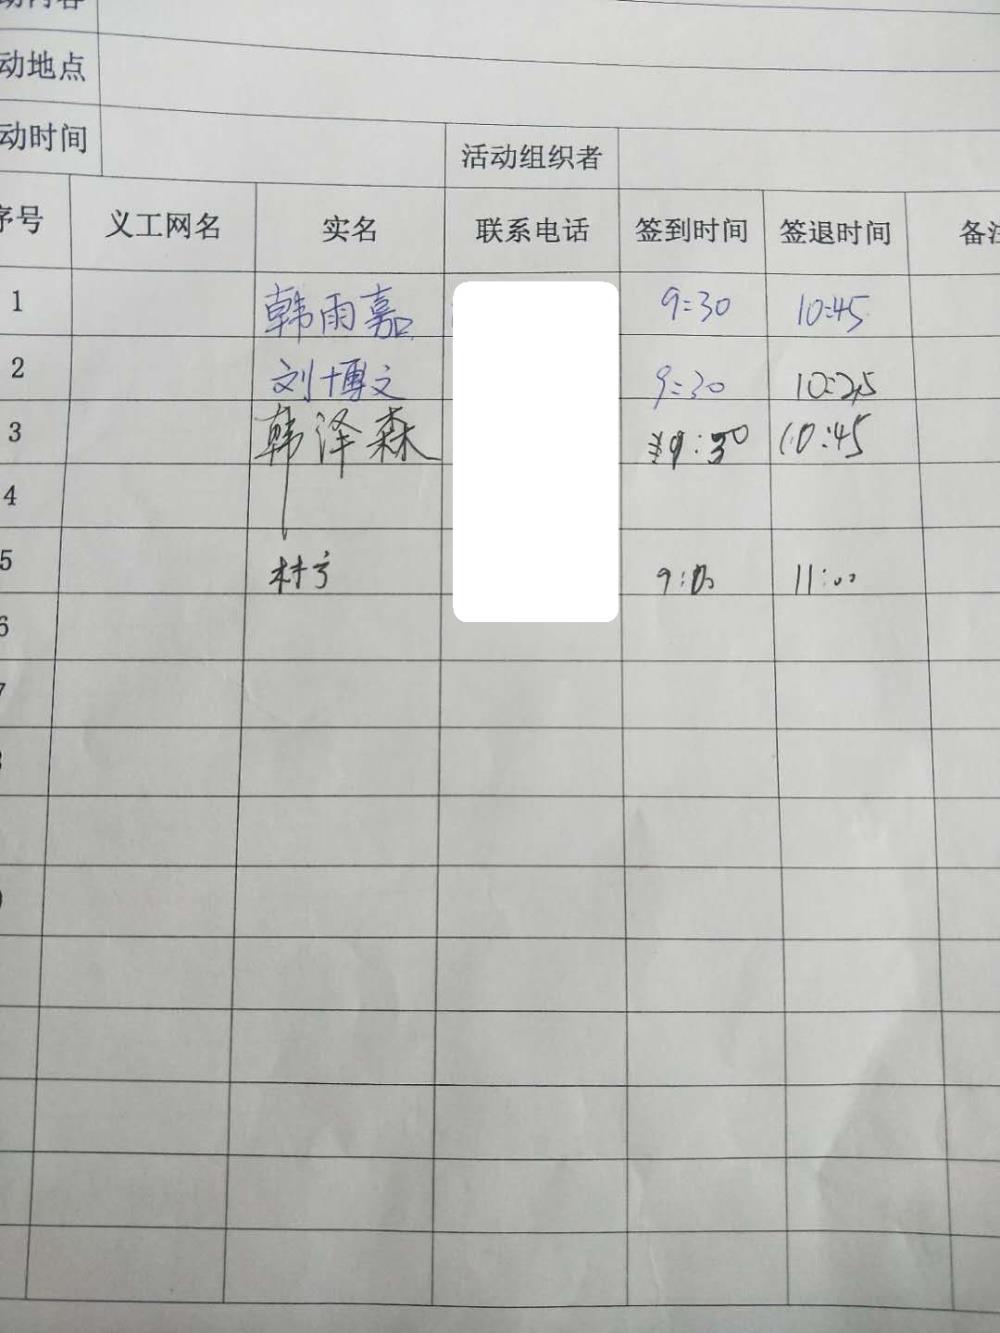 动内容
动地点
动时间 活动组织者
序号 义工网名 实名 联系电话 签到时间 签退时间 备注
1 韩雨嘉 9:30 10:45
2 刘博文 9:30 10:25
3 韩泽森 9:30 10:45
4
5 9:00 11:00
6
7